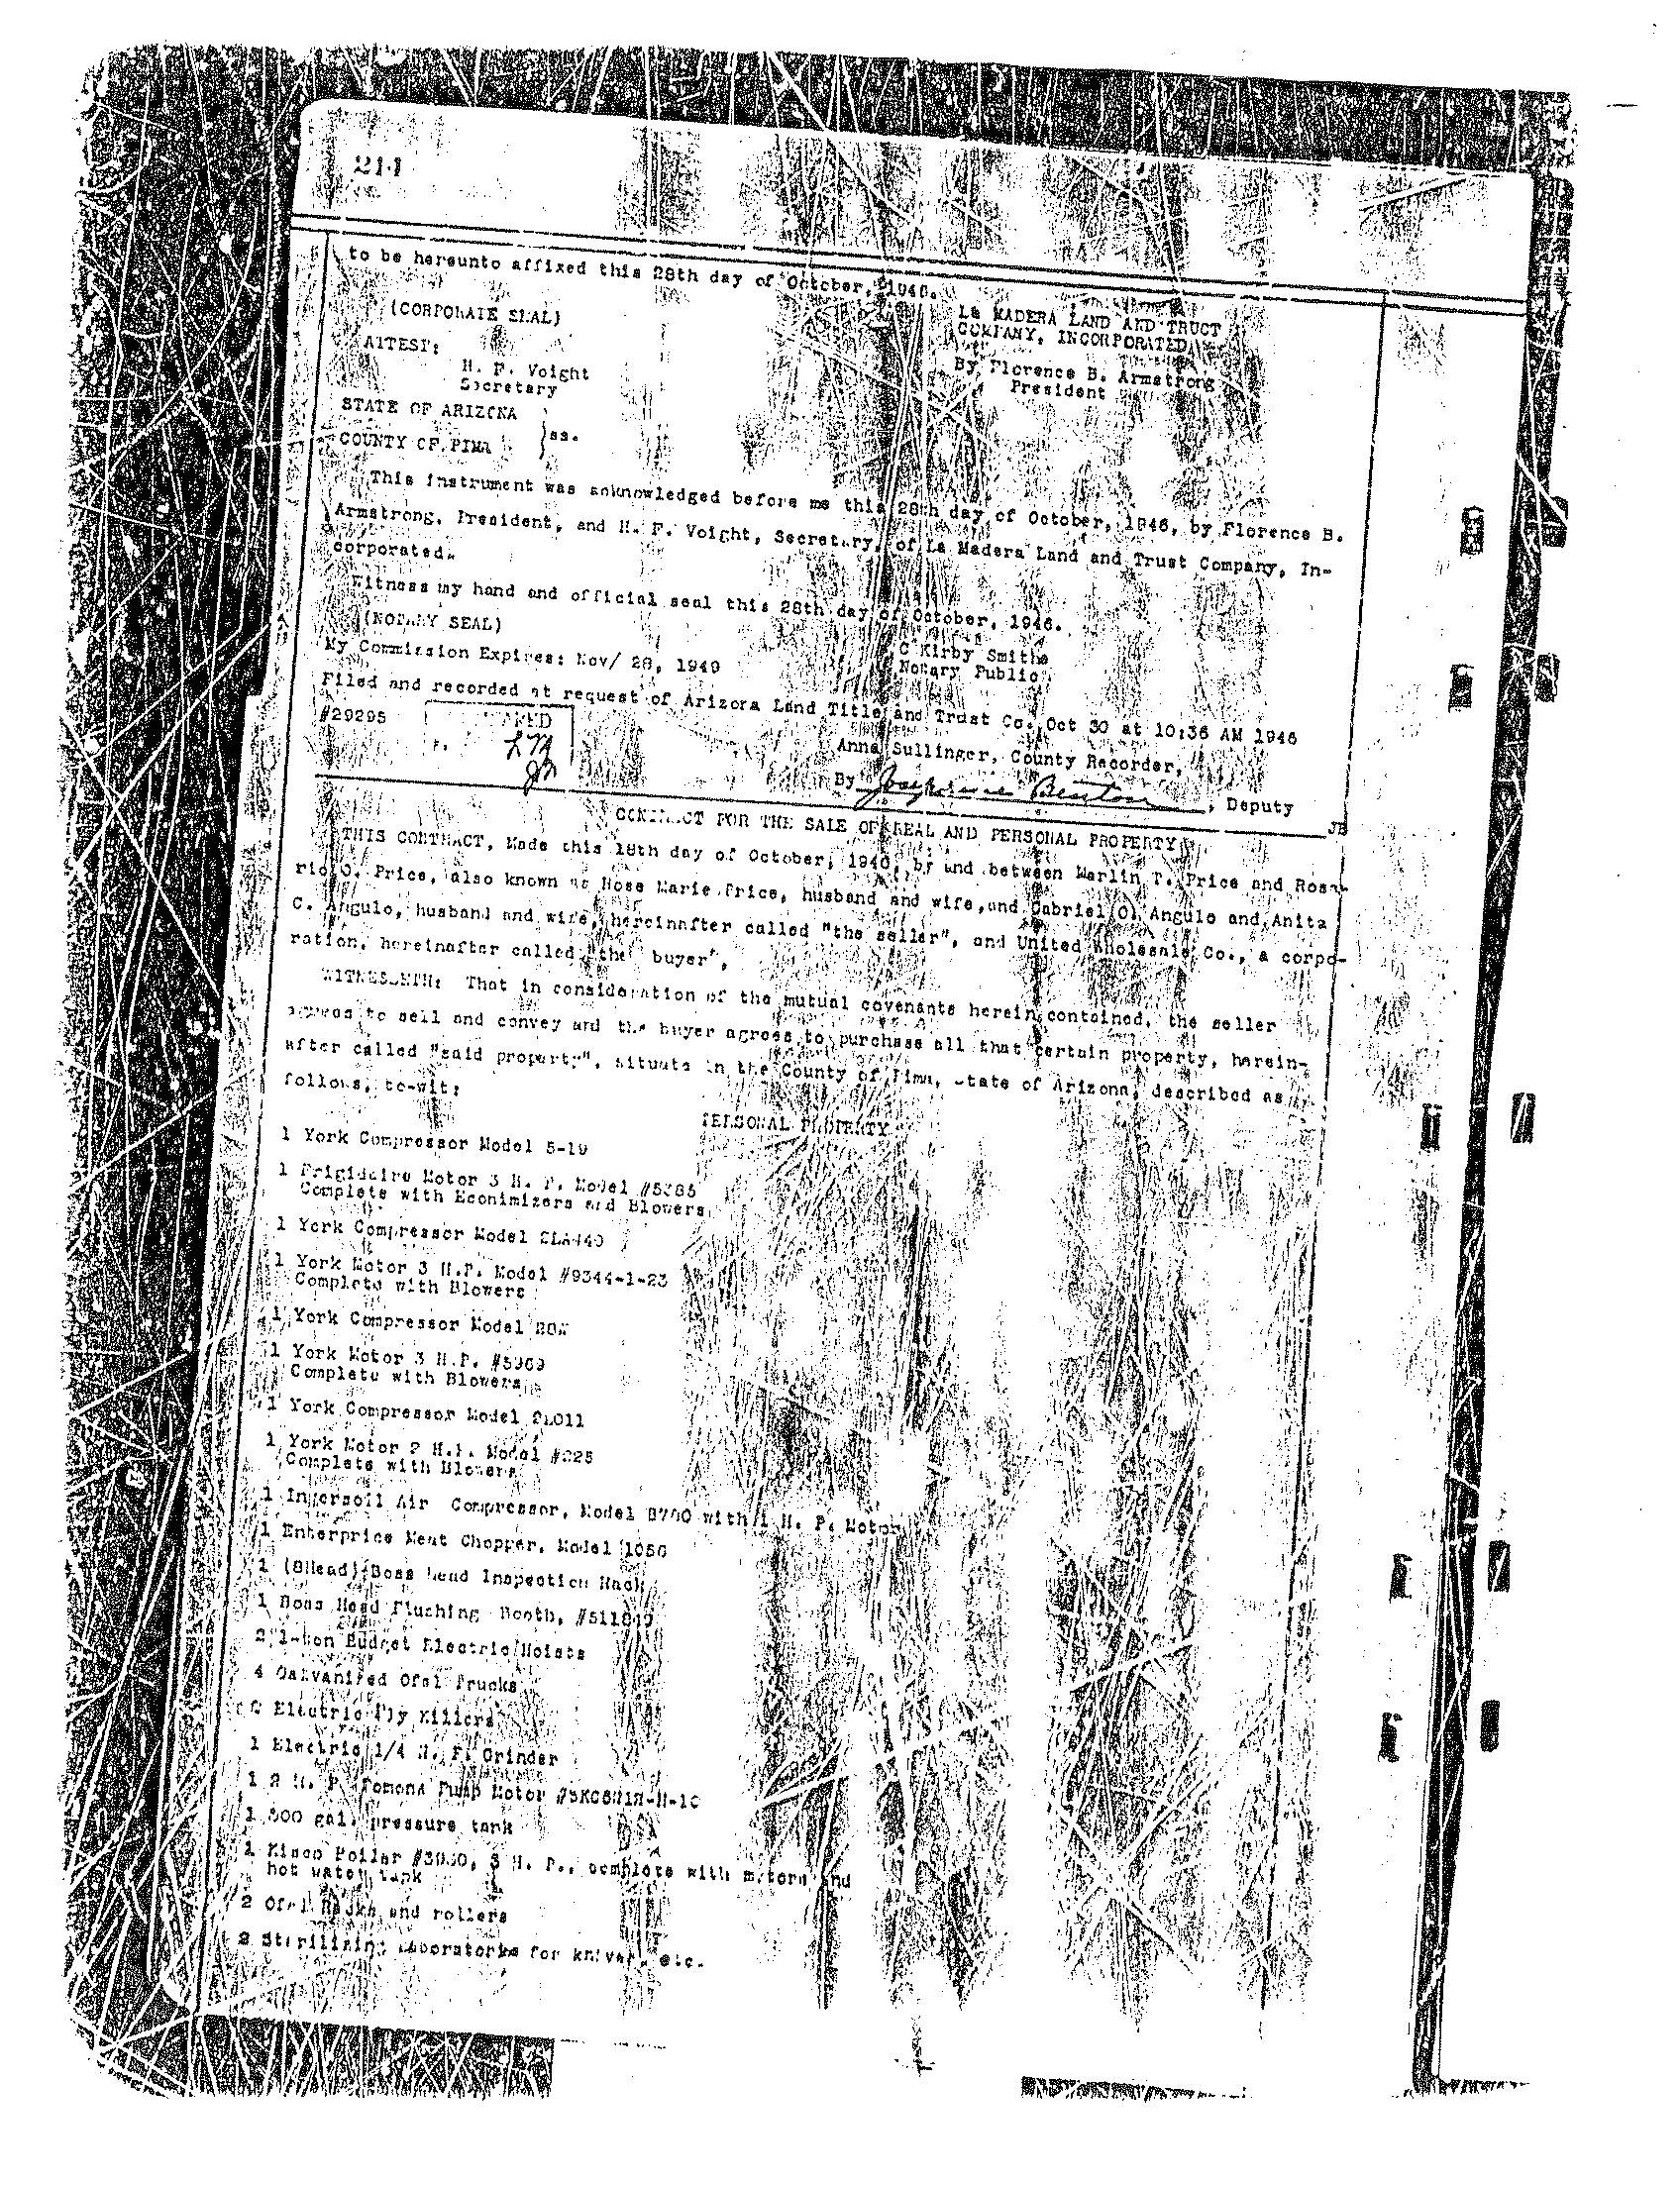 to be hereunto affixed this 28th day of October, 1946.
(CORPORATE SEAL)
La MADERA LAND AND TRUCT
COMPANY, INCORPORATED
ATTEST:
By Florence B. Armstrong
President
H. F. Voight
Secretary
STATE OF ARIZONA
COUNTY OF PIMA } ss.
This instrument was acknowledged before me this 28th day of October, 1946, by Florence B.
Armstrong, President, and H. F. Voight, Secretary, of La Madera Land and Trust Company, In-
corporated.
Witness my hand and official seal this 28th day of October, 1946.
(NOTARY SEAL)
C Kirby Smithe
Notary Public
My Commission Expires: Nov/ 28, 1949
Filed and recorded at request of Arizona Land Title and Trust Co. Oct 30 at 10:36 AM 1946
#29295
Anna Sullinger, County Recorder,
By Josephine Benton, Deputy
JB
CONTRACT FOR THE SALE OF REAL AND PERSONAL PROPERTY
THIS CONTRACT, Made this 18th day of October, 1946, by and between Merlin T. Price and Rosa-
rio O. Price, also known as Rose Marie Price, husband and wife, and Gabriel O. Angulo and Anita
C. Angulo, husband and wife, hereinafter called "the seller", and United Wholesale Co., a corpo-
ration, hereinafter called "the buyer",
WITNESSETH: That in consideration of the mutual covenants herein contained, the seller
agrees to sell and convey and the buyer agrees to purchase all that certain property, herein-
after called "said property", situate in the County of Pima, State of Arizona, described as
follows, to-wit:
PERSONAL PROPERTY
1 York Compressor Model 5-19
1 Frigidaire Motor 3 H. P. Model
Complete with Econimizers and Blowers
1 York Compressor Model
1 York Motor 3 H.P. Model #9344-1-23
Complete with Blowers
1 York Compressor Model
1 York Motor 3 H.P. #5969
Complete with Blowers
1 York Compressor Model
1 York Motor 2 H.P. Model #225
Complete with Blowers
1 Ingersoil Air Compressor, Model 8700 with 1 H. P. Motor
1 Enterprice Meat Chopper, Model 1056
1 (8Head) Boss Head Inspection Rack
1 Boss Head Flushing Booth,
2 1-ton Budget Electric Hoists
4 Galvanized Ofal Trucks
Electric Fly Killers
1 Electric 1/4 H. P. Grinder
1 2 H. P. Pomona Pump Motor
1 500 gal. pressure tank
1 Kisco Boiler 3 H. P., complete with motors and
hot water tank
2 Ofal Racks and rollers
2 Sterilizing Laboratorks for knives, etc.